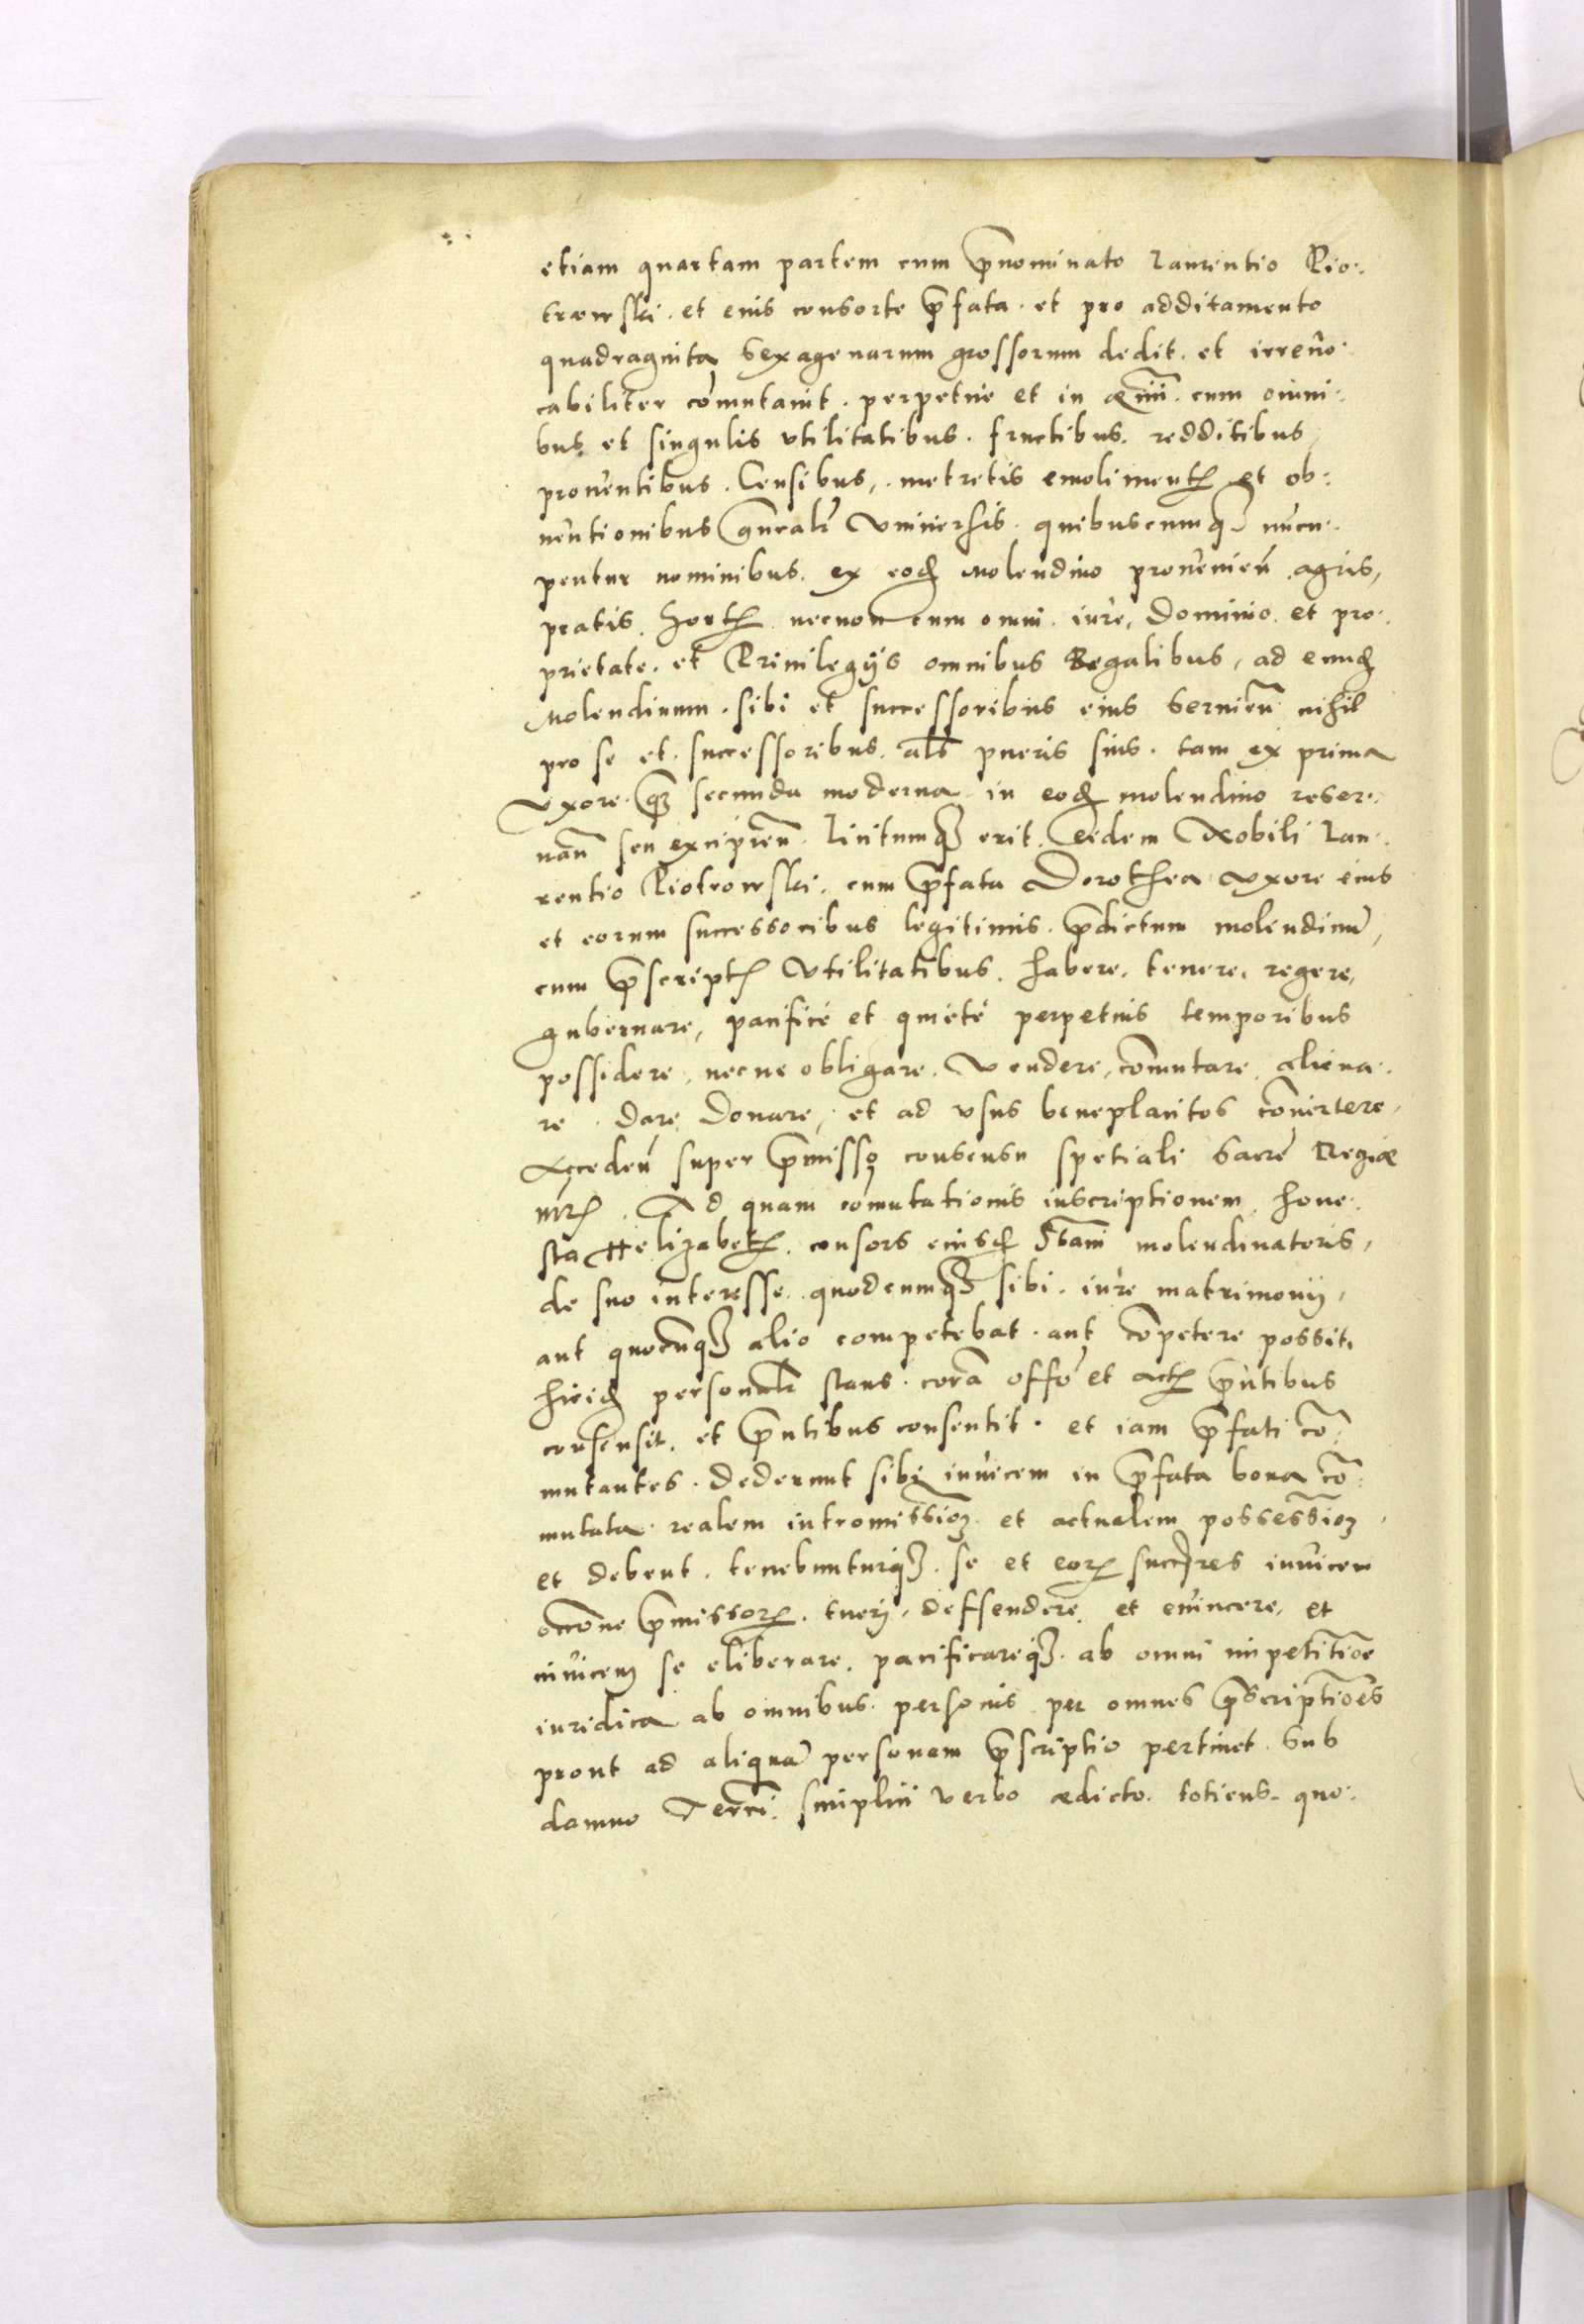 etiam quartam partem cum p̄nominato Laurentio Pio:
trowski. et eius consorte p̄fata. et pro additamento
quadraginta Sexagenarum grossorum dedit. et irreuo:
cabiliter com̄utauit. perpetue et in æuū. cum omni:
bus et singulis vtilitatibus. fructibus. redditibus
prouentibus. Censibus,. metretis emolimentꝭ et ob:
uentionibus gn̄ealr̄ Vniuersis. quibuscumqꝫ nūcu:
pentur nominibus. ex eod molendino prouenieñ. agris,
pratis. hortꝭ. necnon cum omni. iure, Dominio. et pro:
prietate. et Priuilegijs omnibus Regalibus, ad eund
Molendinum. sibi et successoribus eius Seruieñ nihil
pro se et. successoribus. als̄ pueris suis. tam ex prima
Vxore. qꝫ secunda moderna in eod molendino reser:
uañ seu excipieñ. Licitumqꝫ erit. Eidem Nobili Lau:
rentio Piotrowski. cum p̄fata Dorothea Vxore eius
et eorum successoribus legitimis. p̄dictum molendinū,
cum p̄scriptꝭ Vtilitatibus. habere. tenere. regere,
gubernare, pacifice et quiete perpetuis temporibus
possidere. necne obligare. Vendere, com̄utare. aliena:
re. dare. donare, et ad vsus beneplacitos cōuertere.
Accedeñ super p̄misso consensu spetiali Sacre Regiæ
mtꝭ. Ad quam com̄utationis inscriptionem. hone:
sta Helizabetꝭ. consors eiusd Stani molendinatoris,
de suo interesse. quodcumqꝫ sibi. iure matrimonij,
aut quocūqꝫ alio competebat. aut cōpetere possit.
hicid personalr̄ stans. corā offō et actꝭ p̄ntibus
consensit. et p̄ntibus consentit. et iam p̄fati cō:
mutantes. dederunt sibi inuicem in p̄fata bona cō:
mutata. realem intromissioꝫ. et actualem possessioꝫ.
et debent. tenebunturqꝫ. se et eorꝝ succ̄res inuicem
occōne p̄missorꝝ. tuerj. deffendere. et euincere, et
inuiceꝫ se eliberare. pacificareqꝫ. ab omni impetitiōe
iuridica ab omnibus. personis per omnes p̄scriptiōes
prout ad aliquā personam p̄scriptio pertinet. Sub
damno Terrī. simplici verbo ædicto. totiens. quo: